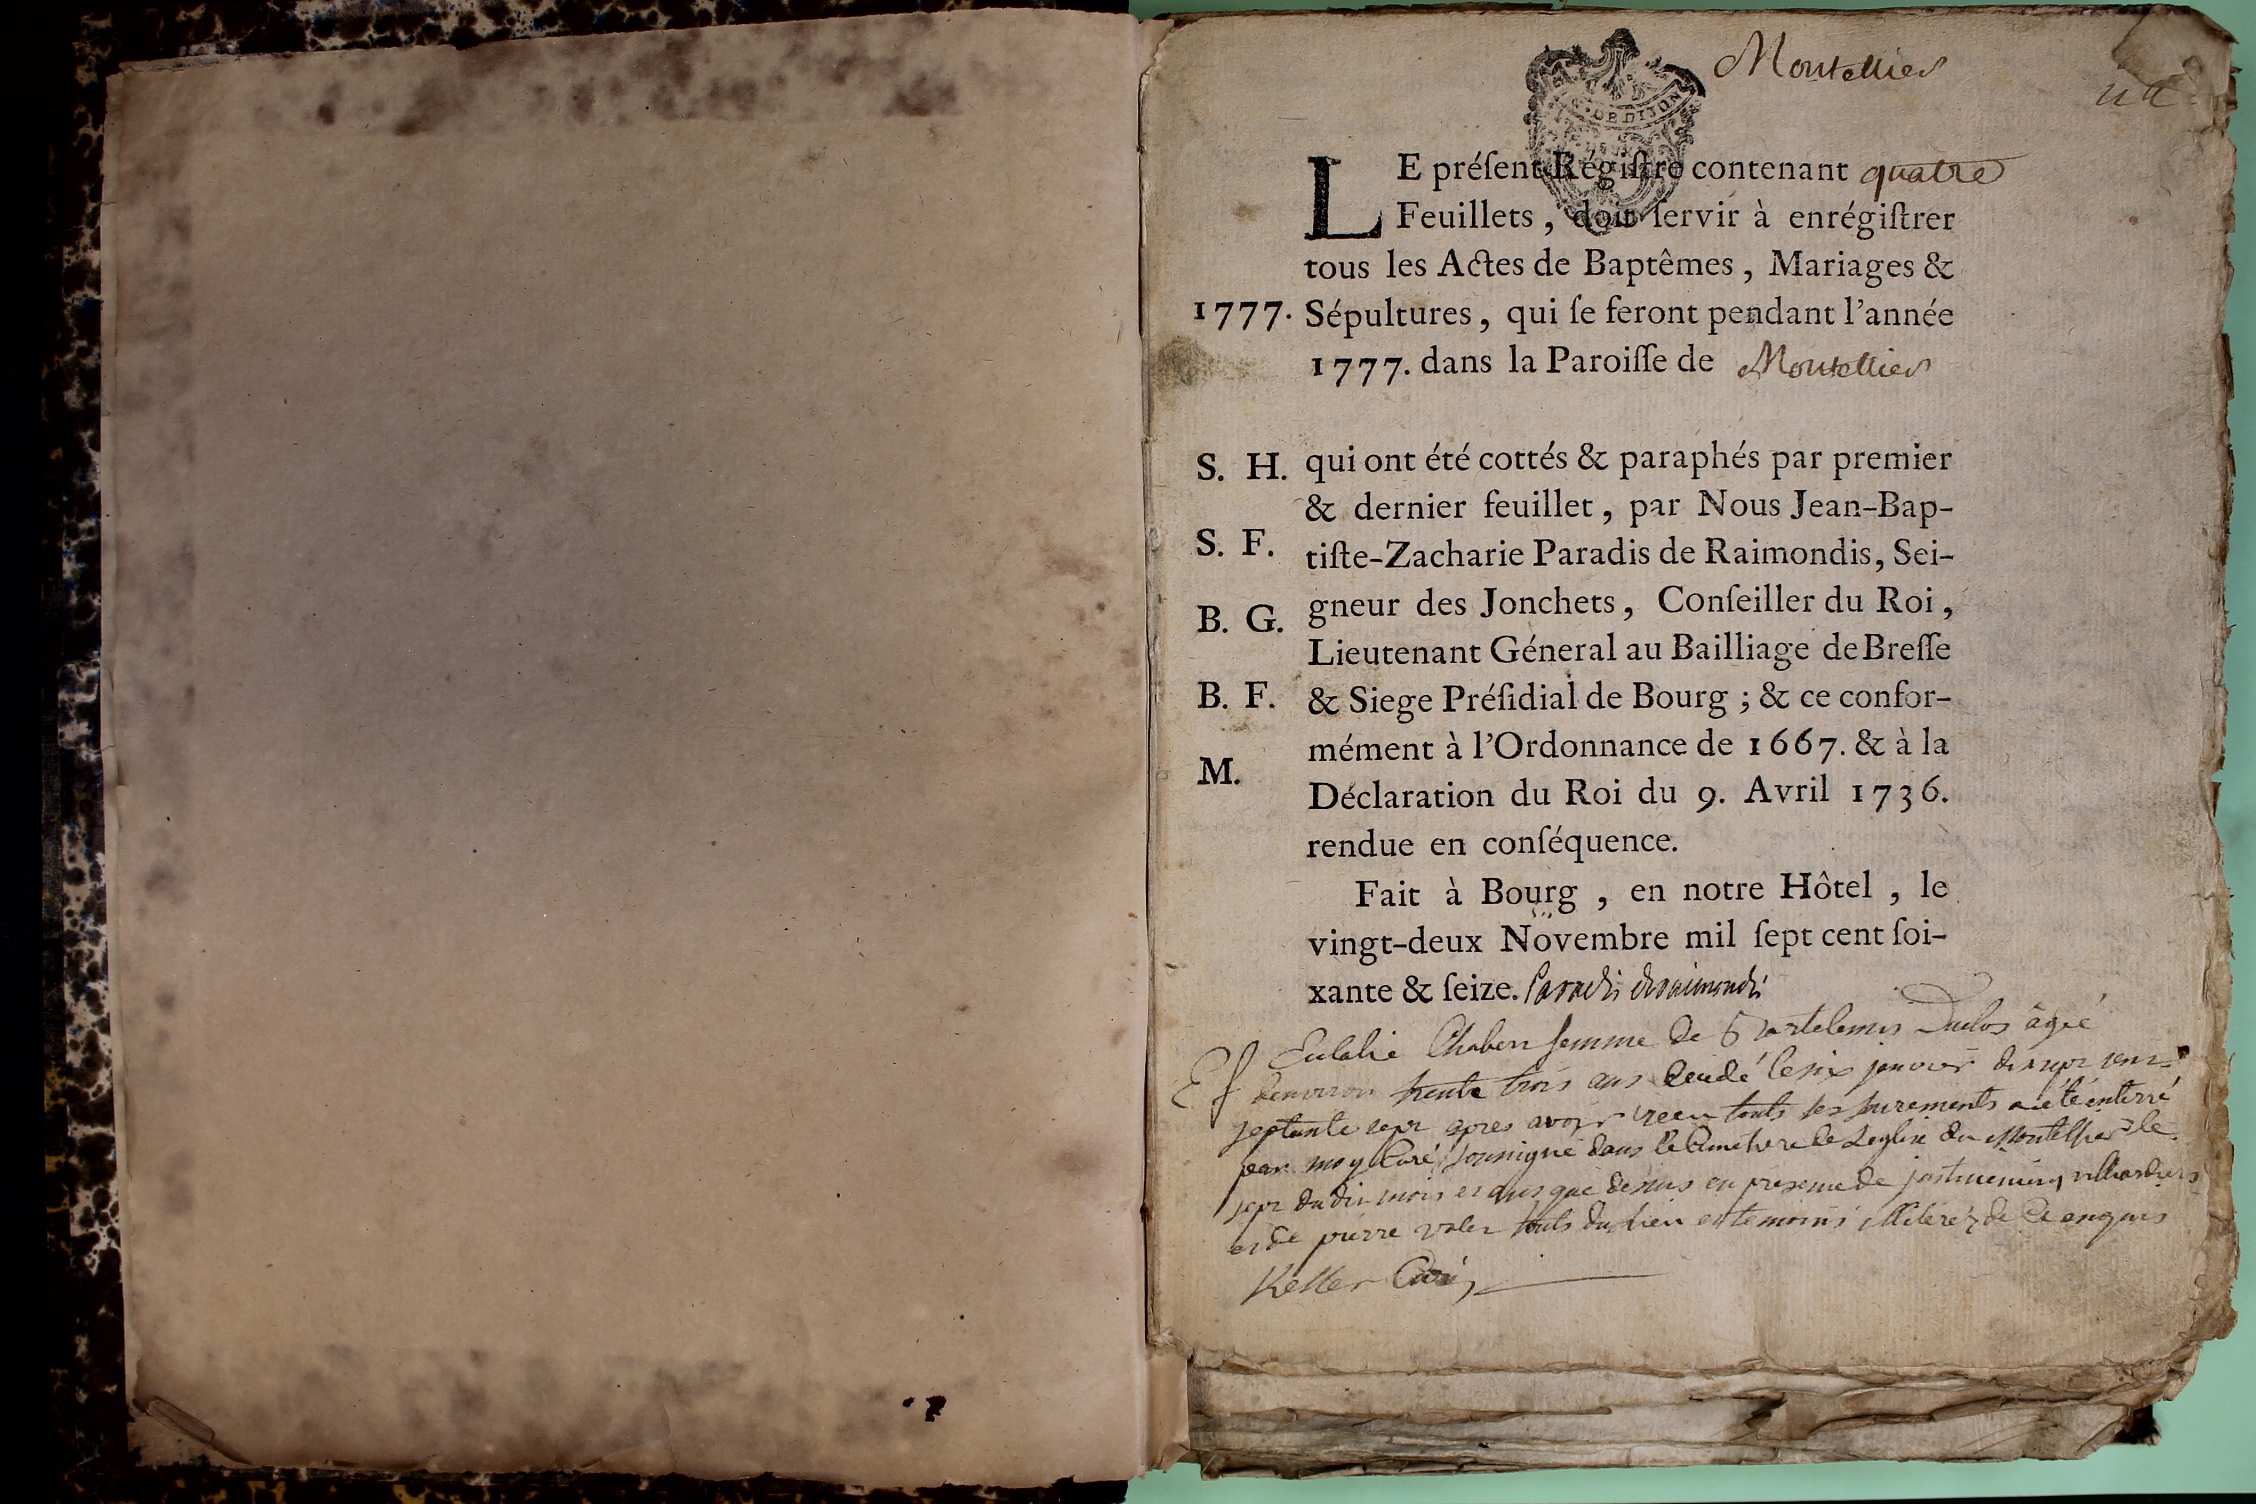 Montellier
G. DE DIJON
LE préſent Régiſtre contenant quatre
Feuillets, doit ſervir à enrégiſtrer
tous les Actes de Baptêmes, Mariages &
1777. Sépultures, qui ſe feront pendant l'année
1777. dans la Paroiſſe de Montellier
S. H. qui ont été cottés & paraphés par premier
& dernier feuillet, par Nous Jean-Bap-
S. F. tiſte-Zacharie Paradis de Raimondis, Sei-
B. G. gneur des Jonchets, Conſeiller du Roi,
Lieutenant Géneral au Bailliage de Breſſe
B. F. & Siege Préſidial de Bourg ; & ce confor-
mément à l'Ordonnance de 1667. & à la
M. Déclaration du Roi du 9. Avril 1736.
rendue en conſéquence.
Fait à Bourg, en notre Hôtel, le
vingt-deux Novembre mil ſept cent ſoi-
xante & ſeize. Paradis deraimondis
Eulalie Chaben femme de Bartelemis Duclos âgée
denviron trente trois ans le six janvier
septante sept apres avoir receu touts ses a été enterré
par moy Curé soussigné dans le de leglise du Montellier le
sept du dit mois et ans que dessus en presence de
et de pierre touts du lieu et temoins de ce enquis
Keller Curé